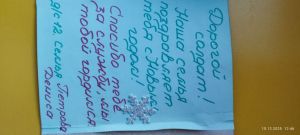 Дорогой
солдат!
Наша семья
поздравляет
тебя с Новым
годом!
Спасибо тебе
за службу, мы
тобой гордимся
д/с 12 семья Петрова
Дениса